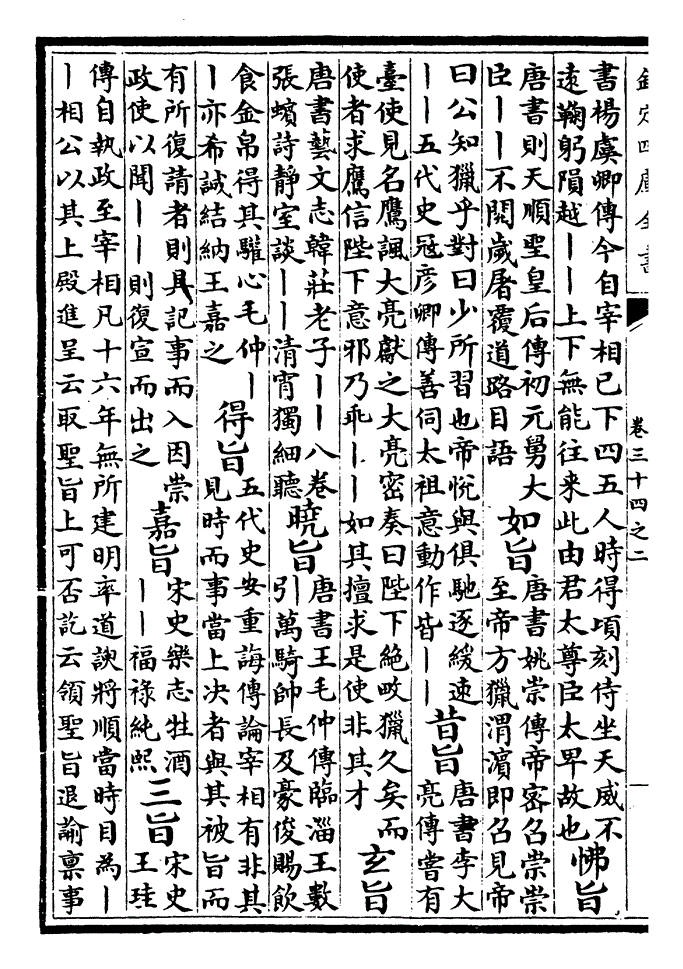 欽定四庫全書
卷三十四之二
書楊虞卿傳今自宰相已下四五人時得頃刻侍坐天威不
遠鞠躬隕越丨丨上下無能往来此由君太尊臣太卑故也
怫旨
唐書則天順聖皇后傳初元舅大
臣丨丨不閱歲屠覆道路目語
如旨
唐書姚崇傳帝密召崇崇
至帝方獵渭濵即召見帝
曰公知獵乎對曰少所習也帝悅與俱馳逐緩速
丨丨五代史冦彦卿傳善伺太祖意動作皆丨丨
昔旨
唐書李大
亮傳嘗有
臺使見名鷹諷大亮獻之大亮密奏曰陛下絶畋獵久矣而
使者求鷹信陛下意邪乃乖丨丨如其擅求是使非其才
玄旨
唐書藝文志韓莊老子丨丨八卷
張蠙詩靜室談丨丨清宵獨細聽
曉旨
唐書王毛仲傳臨淄王數
引萬騎帥長及豪俊賜飲
食金帛得其驩心毛仲丨
丨亦希誠結納王嘉之
得旨
五代史安重誨傳論宰相有非其
見時而事當上决者與其被旨而
有所復請者則具記事而入因崇
政使以聞丨丨則復宣而出之
嘉旨
宋史樂志牲酒
丨丨福祿純熙
三旨
宋史
王珪
傳自執政至宰相凡十六年無所建明率道諛將順當時目為丨
丨相公以其上殿進呈云取聖旨上可否訖云領聖旨退諭稟事